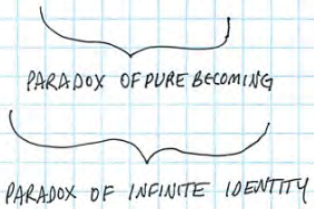 PARADOX OF PURE BECOMING
PARADOX OF INFINITE IDENTITY